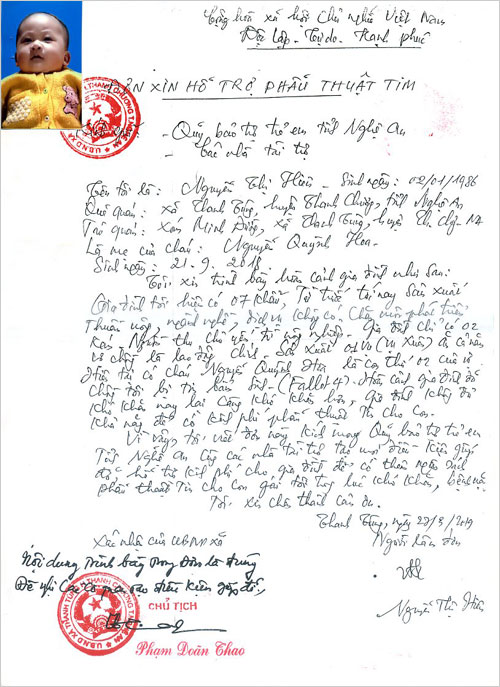 Cộng hòa xã hội Chủ nghĩa Việt Nam
Độc lập - Tự do - Hạnh phúc
ĐƠN XIN HỖ TRỢ PHẪU THUẬT TIM
Kính gửi: - Quỹ bảo trợ trẻ em tỉnh Nghệ An
- Các nhà tài trợ
Tên tôi là: Nguyễn Thị Hiền - Sinh ngày: 02/01/1986
Quê quán: xã Thanh Tùng, huyện Thanh Chương, tỉnh Nghệ An
Trú quán: Xóm Minh Đồng, xã Thanh Tùng, huyện Th. Chg - NA
Là mẹ của cháu: Nguyễn Quỳnh Hoa
Sinh ngày: 21.9.2018
Tôi xin trình bày hoàn cảnh gia đình như sau:
Gia đình tôi hiện có 07 khẩu, Từ trước tới nay sản xuất
thuần nông, ngành nghề, dịch vụ không có. Chăn nuôi phát triển
kém. Nguồn thu chủ yếu từ nông nghiệp. Gia đình chỉ có 02
vợ chồng là lao động chính. Sản xuất 01 vụ (vụ xuân)
Hiện tại có cháu Nguyễn Quỳnh Hoa là con thứ 02 của vợ
chồng tôi bị tim bẩm sinh - (Fallot 4). Hoàn cảnh gia đình đã
khó khăn nay lại càng khó khăn hơn, gia đình không đủ
khả năng để có kinh phí phẫu thuật Tim cho con.
Vì vậy, tôi viết đơn này kính mong Quỹ bảo trợ trẻ em
Tỉnh Nghệ An cùng các nhà tài trợ tạo mọi điều kiện giúp
đỡ, hỗ trợ kinh phí cho gia đình để có thêm nguồn
phẫu thuật Tim cho con gái tôi trong lúc khó khăn, bệnh nặng
Tôi xin chân thành cảm ơn.
Thanh Tùng, ngày 27/3/2019
Xác nhận của UBND xã
Người làm đơn
Nội dung trình bày trong đơn là đúng
Đề nghị các cơ quan tạo điều kiện giúp đỡ.
CHỦ TỊCH
Nguyễn Thị Hiền
Phạm Doãn Thao